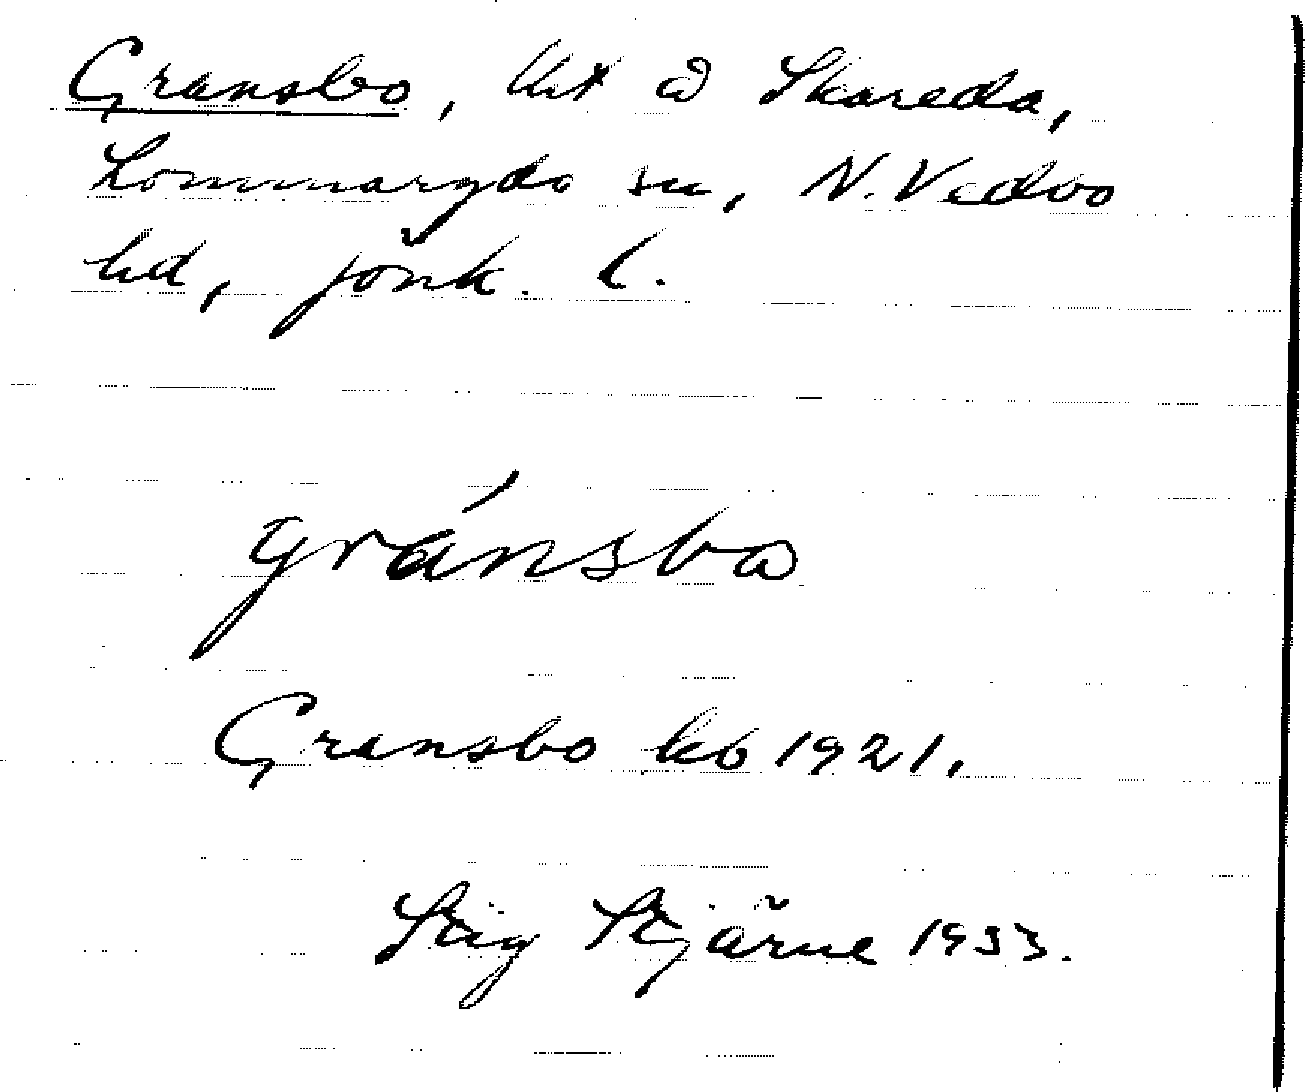 Gransbo, lht å Skareda,
Lommaryds sn, N. Vedbo
hd, Jönk. l.
gránsbo
Gransbo kb 1921.
Stig Stjärne 1933.